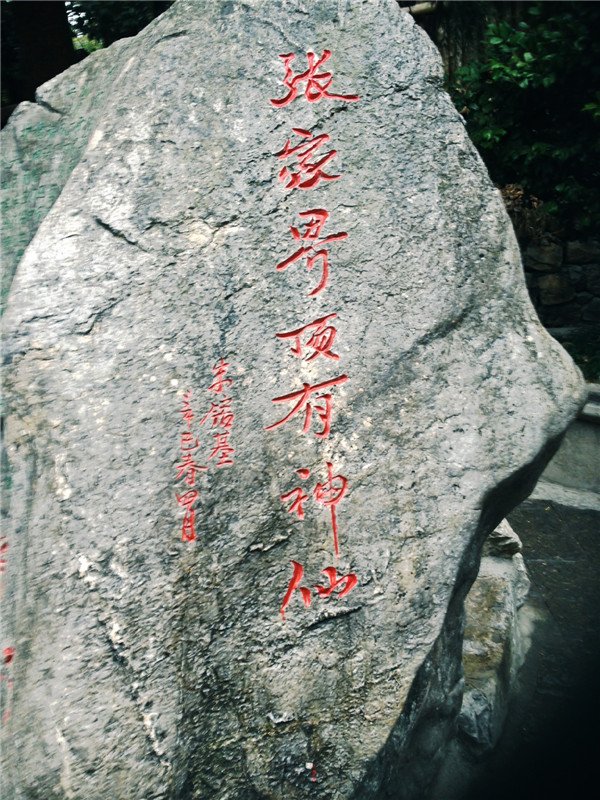 张家界顶有神仙
朱镕基
辛巳春四月